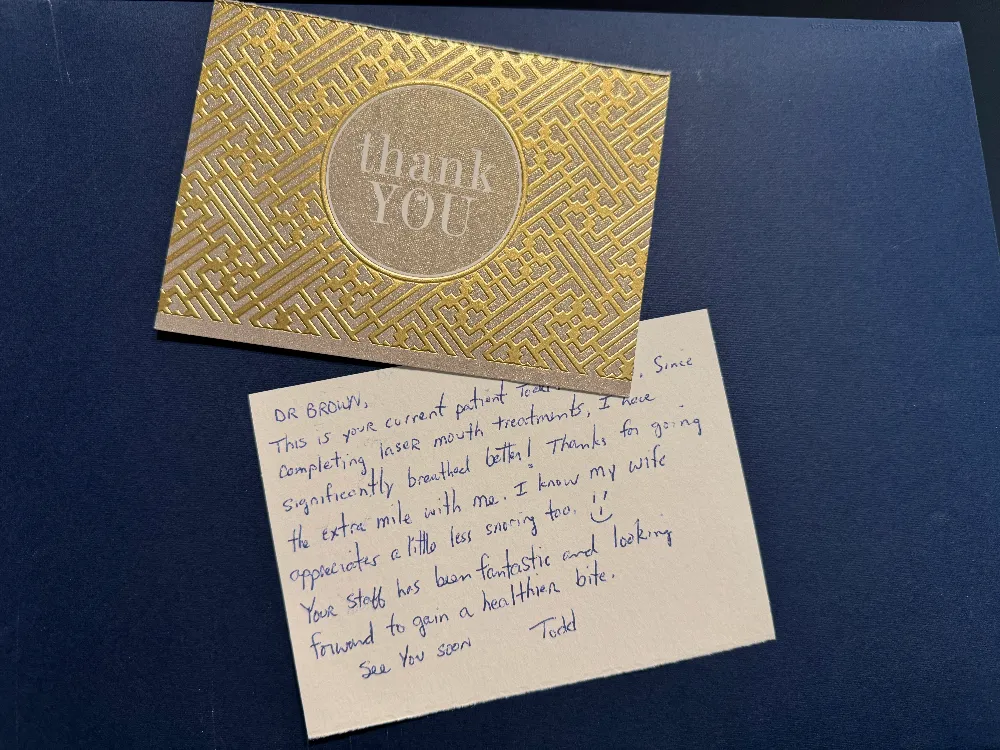 thank
YOU
DR BROWN,
This is your current patient Todd. Since
completing laser mouth treatments, I have
significantly breathed better! Thanks for going
the extra mile with me. I know my wife
appreciates a little less snoring too.
Your staff has been fantastic and looking
forward to gain a healthier bite.
See You soon Todd